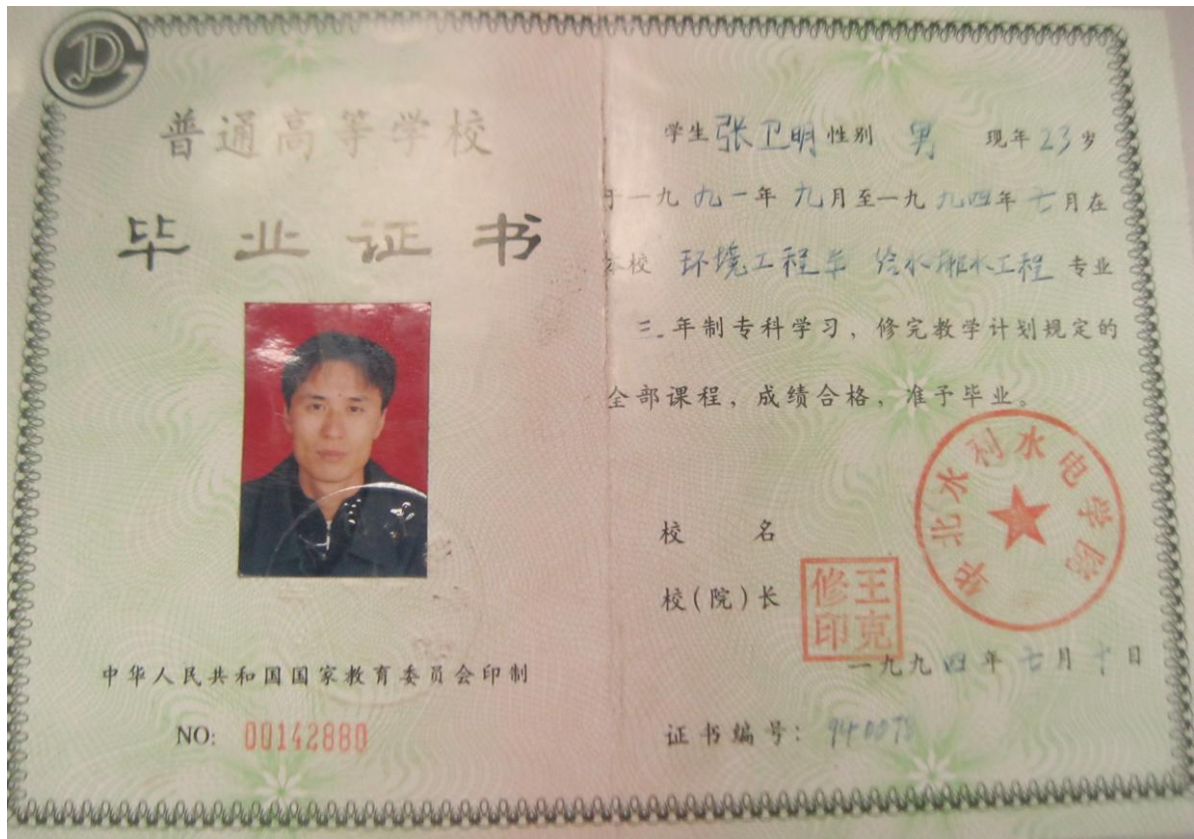 普通高等学校
毕业证书
中华人民共和国国家教育委员会印制
NO: 00142880
学生张卫明性别 男 现年23岁
于一九九一年九月至一九九四年七月在
本校 环境工程系 给水排水工程 专业
三年制专科学习，修完教学计划规定的
全部课程，成绩合格，准予毕业。
华北水利水电学院
校 名
校(院)长
王克修印
一九九四年七月十日
证书编号：